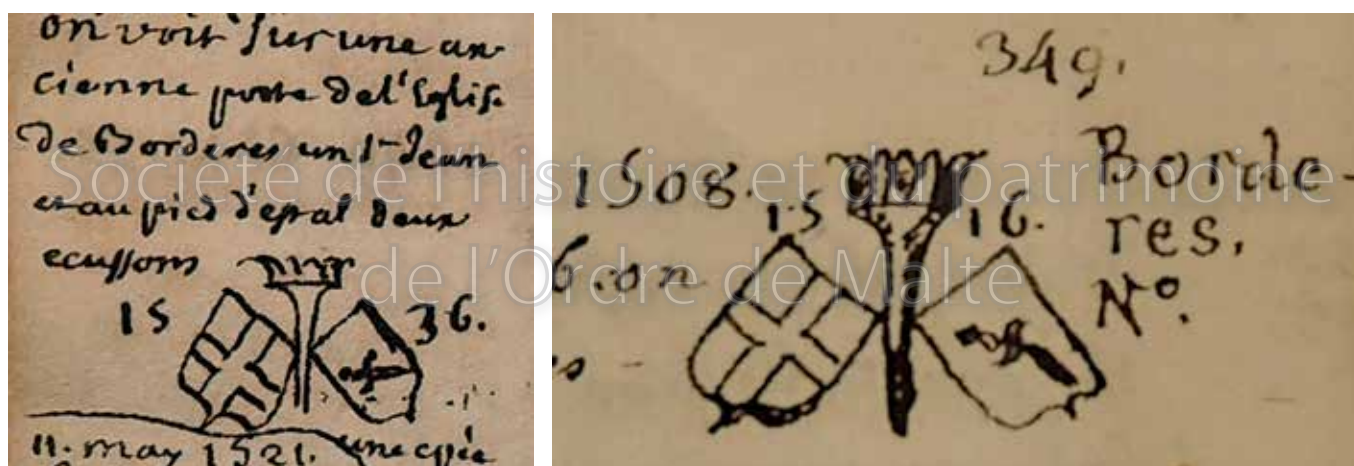 on voit sur une an-
cienne porte de l'Eglise
de Borderes un St Jean
et au pied d'estal deux
ecussons
15 36.
11. may 1521. une espée
349.
1508. Borde-
15 16. res.
6. on N°.
Société de l'histoire et du patrimoine
de l'Ordre de Malte